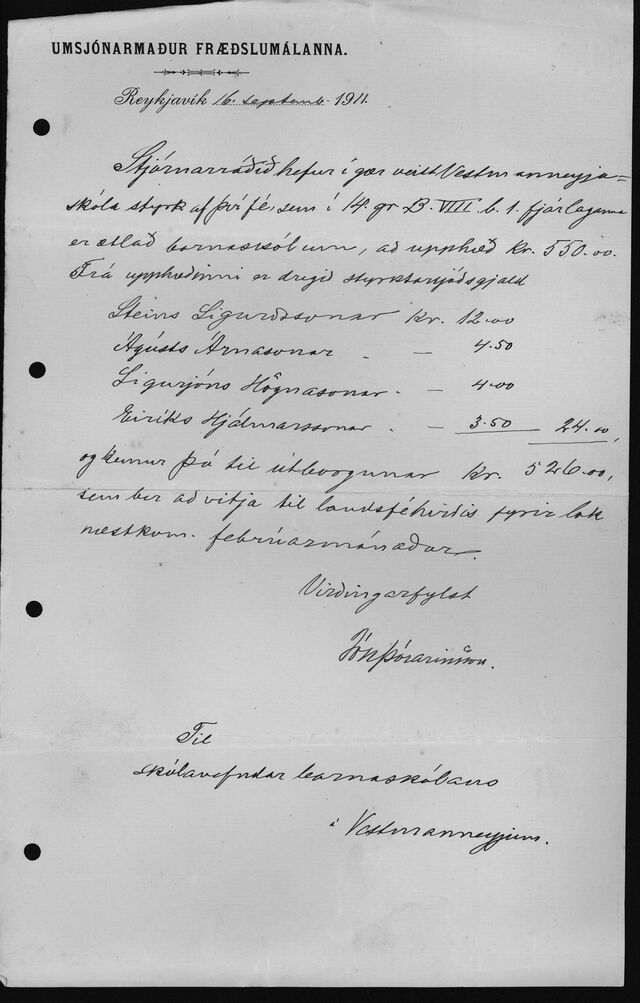 UMSJÓNARMAÐUR FRÆÐSLUMÁLANNA.
Reykjavík 16. septemb. 1911.
Stjórnarráðið hefur í gær veitt Vestmanneyja-
skóla styrk af því fé, sem í 14. gr. B. VIII. b. 1. fjárlaganna
er ætlað barnaskólum, að upphæð kr. 550.00.
Frá upphæðinni er dregið styrktarsjóðsgjald
Steins Sigurðssonar kr. 12.00
Ágústs Árnasonar - — 4.50
Sigurjóns Högnasonar - — 4.00
Eiríks Hjálmarssonar - — 3.50 24.00,
og kemur þá til útborgunar kr. 526.00,
sem ber að vitja til landsféhirðis fyrir lok
næstkom. febrúarmánaðar.
Virðingarfylst
Jón Þórarinsson.
Til
skólanefndar barnaskólans
í Vestmanneyjum.